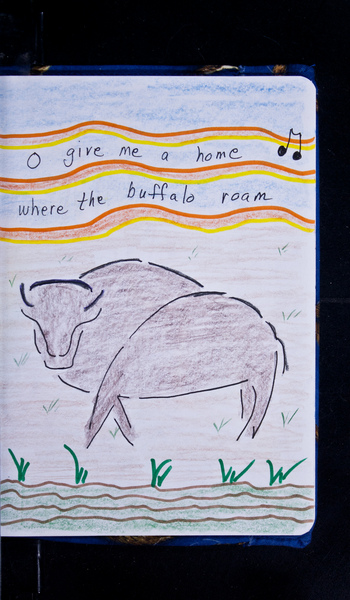 O give me a home
where the buffalo roam